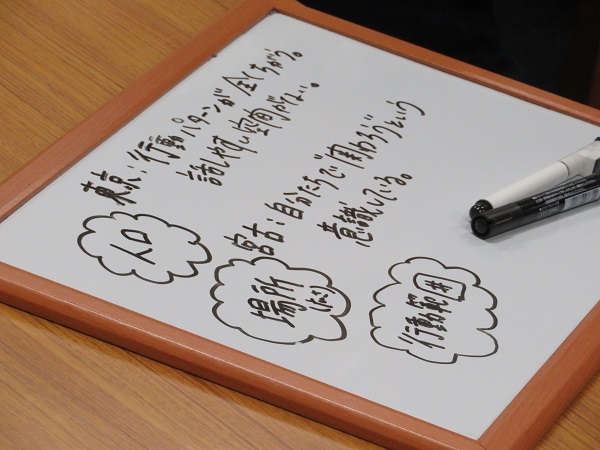 東京：行動パターンが全くちがう。
話しやすい空間がない。
宮古：自分たちで関わろうという
意識している。
人口
場所
行動範囲